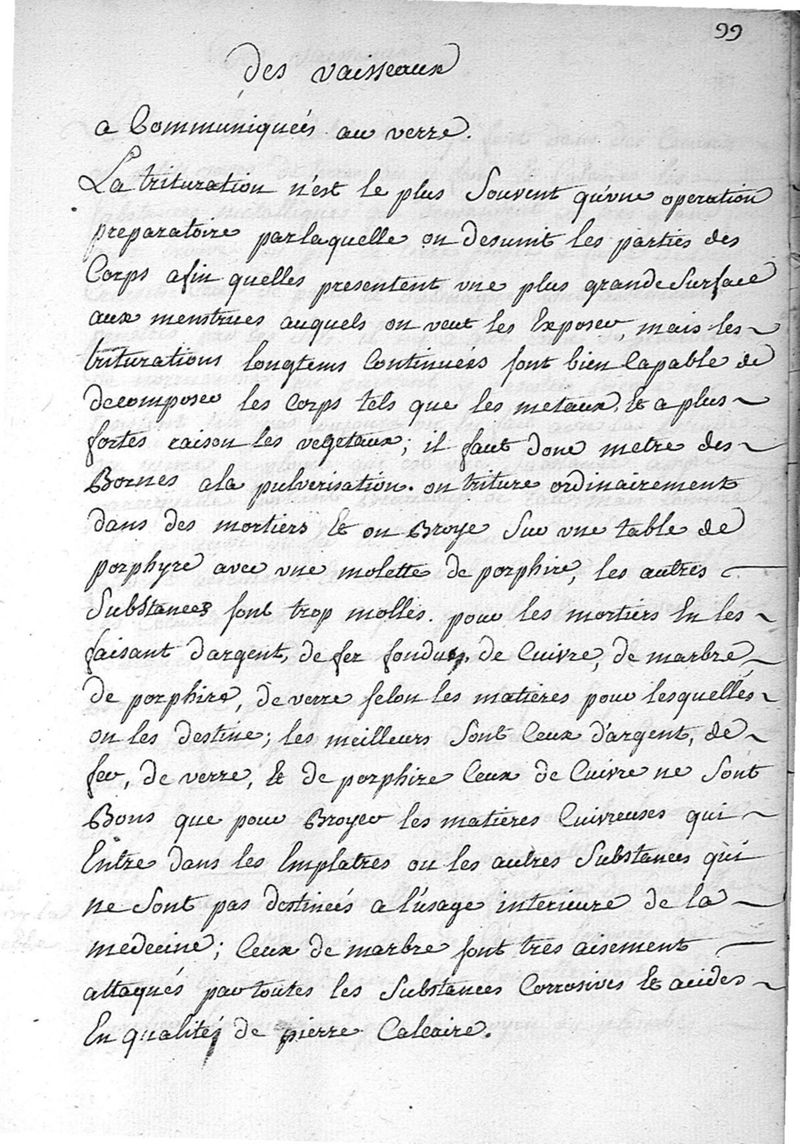 99
des vaisseaux
a Communiqueés au verre.
La trituration n'est le plus Souvent qu'vne operation
preparatoire par laquelle on desunit les parties des
Corps afin quelles presentent vne plus grande Surface
aux menstrues auquels on veut les Exposer, mais les ~
triturations longtems Continueés sont bien Capable de
decomposer les Corps tels que les metaux. Et a plus ~
fortes raison les vegetaux; il faut donc metre des ~
Bornes a la pulverisation. on triture ordinairement
dans des mortiers Et on Broye Sur vne table de
porphyre avec vne molette de porphire, les autres —
Substances sont trop molles. pour les mortiers En les ~
faisant d'argent, de fer fondu, de Cuivre, de marbre ~
de porphire, de verre selon les matières pour lesquelles ~
on les destine; les meilleurs Sont Ceux d'argent, de ~
fer, de verre, Et de porphire Ceux de Cuivre ne Sont
Bons que pour Broyer les matières Cuivreuses qui ~
Entre dans les Emplatres ou les autres Substances qui
ne Sont pas destineés a l'usage interieure de la —
medecine; Ceux de marbre sont tres aisement —
attaqués par toutes les Substances Corrosives Et acides ~
En qualité de pierre Calcaire.